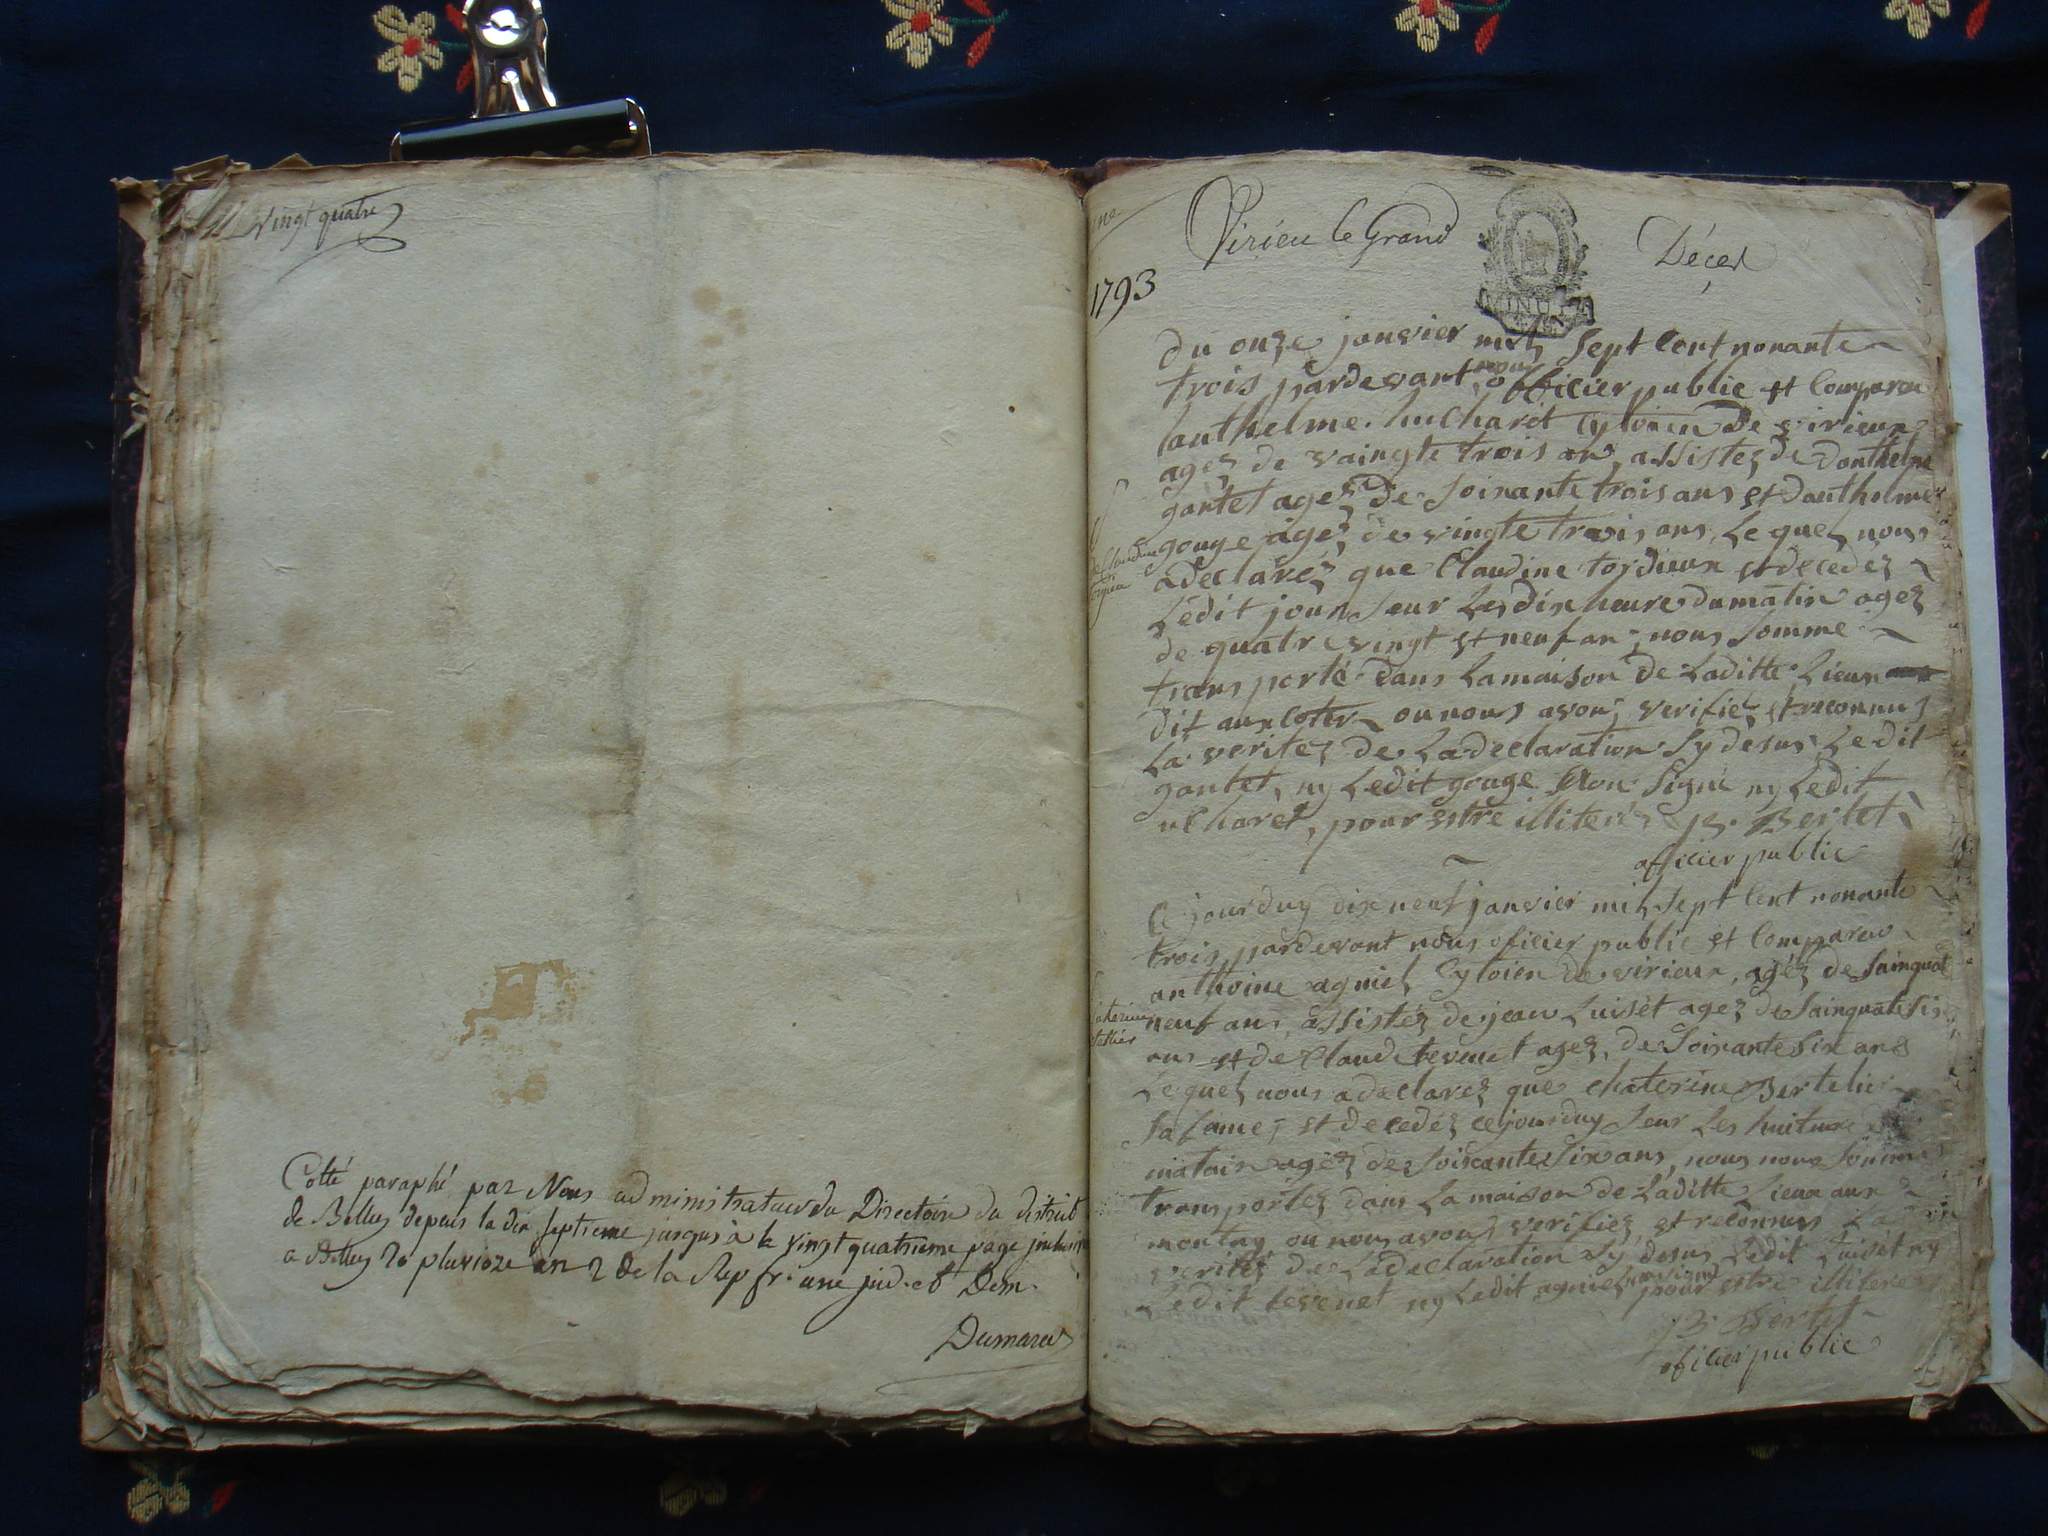 vingt quatre
Cotté paraphé par Nous administrateur du Directoire du district
de Belley depuis la dix septieme jusques à la vingt quatrieme page
a Belley 26 pluvioze an 2 de la Rep fr. une ind. et Dem.
une
Virieu le Grand
Décex
MINUT
1793
du onze janvier mil sept cent nonante
trois pardevant nous officier public et comparu
anthelme hucharet cytoien de virieux
agez de vaingte trois an assistez de Danthelme
gantet agez de soixante trois ans et danthelme
gouge agez de vingte trois ans, Le quel nous
a declarez que Claudine tordieux et decedez
Ledit jour seur Les dix heure du matin agez
de quatre vingt et neuf an, nous somme
transporté dans La maison de Laditte Lieux
dit aux cotes ou nous avons verifiez et reconnus
La veritez de La declaration sy desus Ledit
gantet, ny Ledit gouge non signé ny Ledit
ucharet, pour estre illiteré B. Berlet
officier public
Ce jourduy dix neuf janvier mil sept cent nonante
trois pardevant nous oficier public et comparu
anthoine agniel cytoien de virieux, agéz de sainquante
neuf ans assistéz de jean Luiset agez de sainquante six
ans et de Claude tevenet agez de soixante six ans
Le quel nous a declarez que chaterine Bertelier
sa fame, et decedéz ce jourduy seur Les huit
matain agéz de soiscante six ans, nous nous somme
transportez dans La maison de Laditte Lieux aux
montey ou nous avons verifiez et reconnus La
veritez de La declaration sy desus Ledit Luiset ny
Ledit tevenet ny Ledit agniel non signé pour estre illiterez
B. Berlet
oficier public